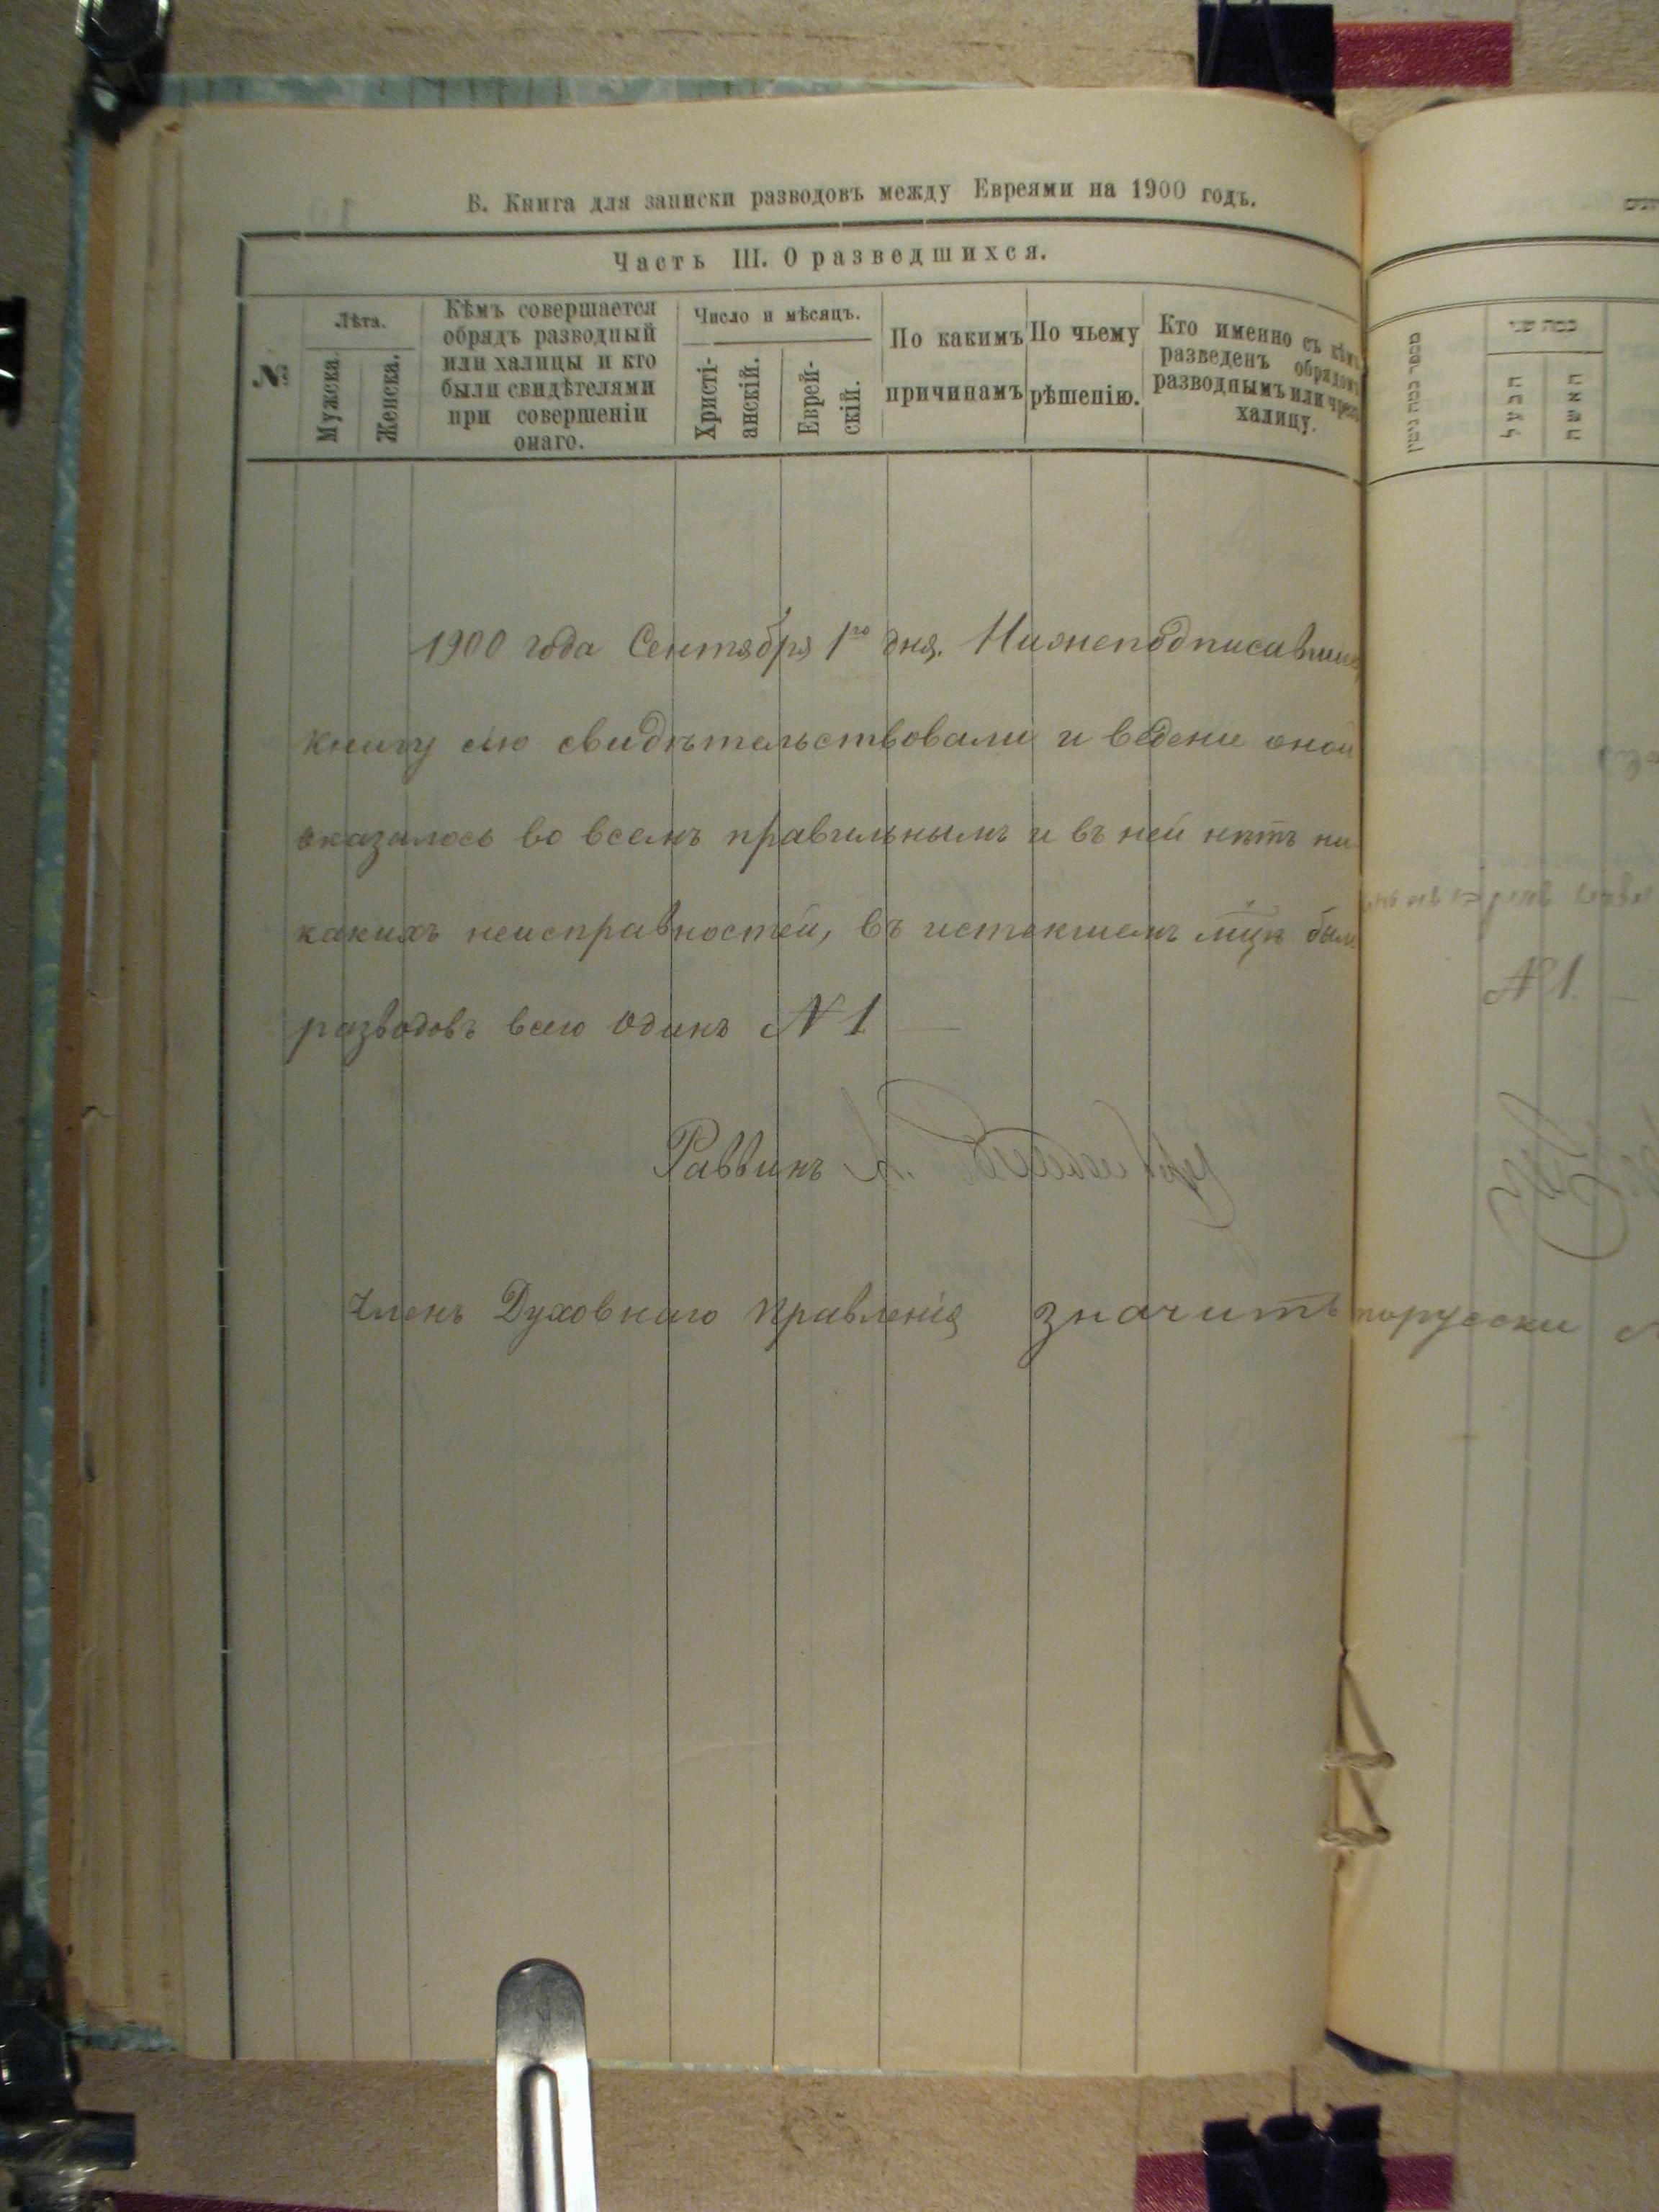 В. Книга для записки разводовъ между Евреями на 1900 годъ.
Часть III. О разведшихся.
№
Лѣта.
Мужска
Женска.
Кѣмъ совершается
обрядъ разводный
или халицы и кто
были свидѣтелями
при совершеніи
онаго.
Число и мѣсяцъ.
Христі-
анскій.
Еврей-
скій.
По какимъ
причинамъ
По чьему
рѣшенію.
Кто именно съ кѣмъ
разведенъ обрядомъ
разводнымъ или чрезъ
халицу.
1900 года Сентября 1го дня. Нижеподписавшиеся
книгу сію свидѣтельствовали и ведение оной
оказалось во всемъ правильнымъ и въ ней нѣтъ ни-
какихъ неисправностей, въ истекшемъ мцѣ было
разводовъ всего одинъ N 1
Раввинъ
Членъ Духовнаго Правленія значитъ порусски
מספר כמה גיטין
כמה שני
הבעל
האשה
N 1